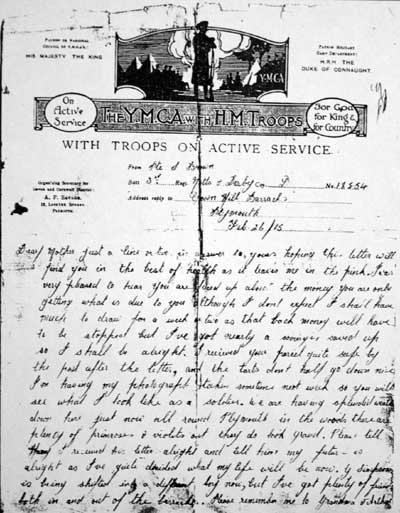 PATRON OF NATIONAL
COUNCIL OF Y.M.C.A.'S:
HIS MAJESTY THE KING
PATRON MILITARY
CAMP DEPARTMENT:
H.R.H. THE
DUKE OF CONNAUGHT.
Y·M·C·A
On
Active
Service
THE Y.M.C.A. WITH H.M. TROOPS
For God,
for King &
for Country
WITH TROOPS ON ACTIVE SERVICE.
Organizing Secretary for
Devon and Cornwall District:
PLYMOUTH.
From Pte J Brown
Batt 3rd Reg. Notts & Derby
Address reply to Crown Hill Barracks
Plymouth
Feb 26/15
Dear Mother just a line or two in answer to yours hoping this letter will
find you in the best of health as it leaves me in the pink. I was
very pleased to hear you are fixed up alone the money you are only
getting what is due to you although I dont expect I shall have
much to draw for a week or two as that back money will have
to be stopped but I've got nearly a sovereign saved up
so I shall be alright. I recieved your parcel quite safe by
the post after the letter, and the tarts dont half go down nice
I'm having my photograph taken sometime next week so you will
see what I look like as a soldier. We are having splendid weather
down here just now all round Plymouth in the woods there are
plenty of primroses & violets out they do look grand. Please tell
I recieved his letter alright and tell him my future is
alright as I've quite decided what my life will be now.
is being shifted into a different now, but I've got plenty of friends
both in and out of the barracks. Please remember me to Grandma